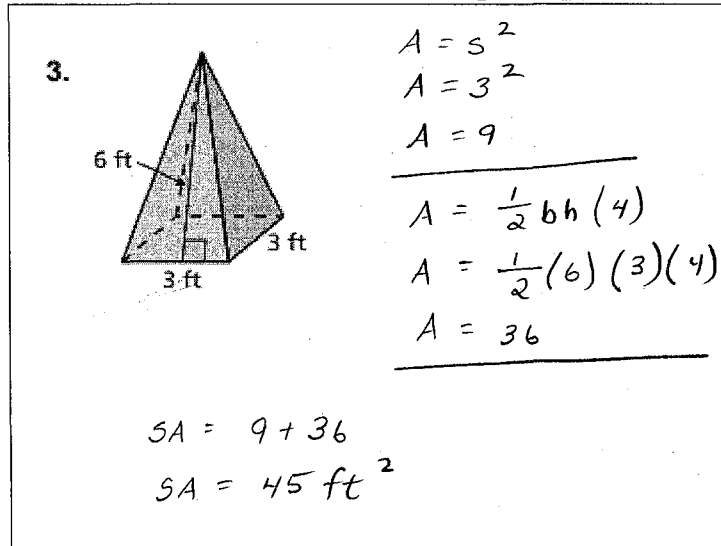 3.
6 ft
3 ft
3 ft
A = s²
A = 3²
A = 9
A = ½ bh (4)
A = ½ (6) (3) (4)
A = 36
SA = 9 + 36
SA = 45 ft²